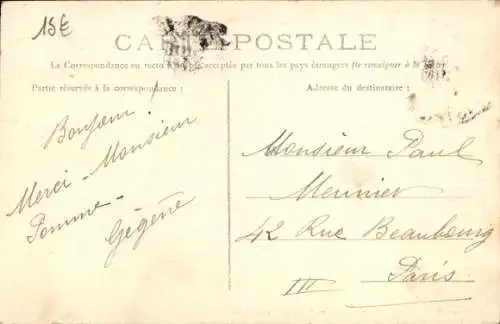 15€
CARTE POSTALE
La Correspondance au recto n'est pas acceptée par tous les pays étrangers (Se renseigner à la Poste)
Partie réservée à la correspondance :
Bonjour !
Merci - Monsieur
Pomme -
Gégène
Adresse du destinataire :
Monsieur Paul
Meunier
42 Rue Beaubourg
III
Paris